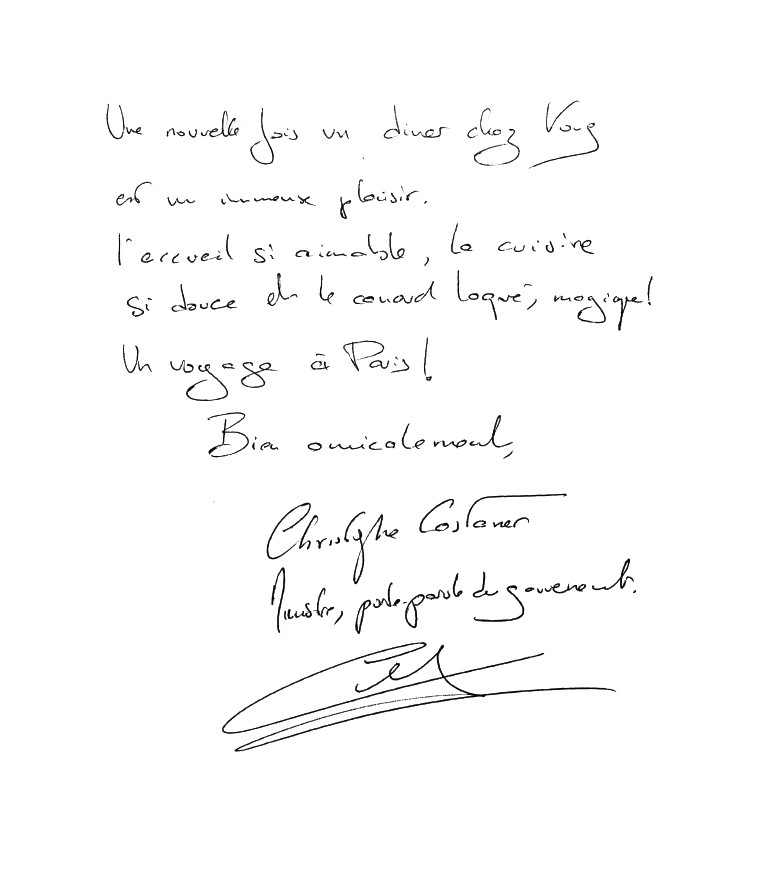 Une nouvelle fois un diner chez Vous
est un immense plaisir.
l'accueil si aimable, la cuisine
si douce et le canard laqué, magique!
Un voyage à Paris!
Bien amicalement,
Christophe Castaner
Ministre, porte-parole du gouvernement.